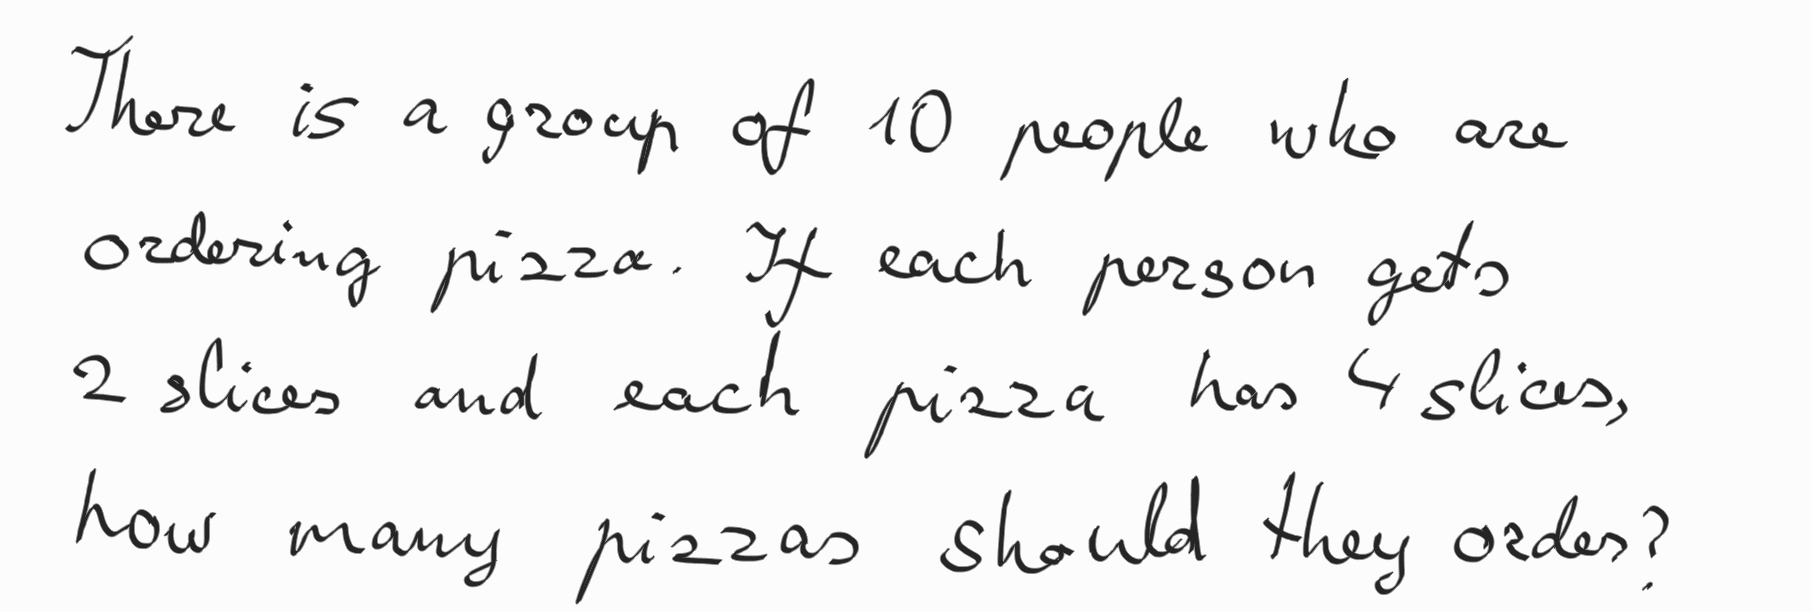 There is a group of 10 people who are
ordering pizza. If each person gets
2 slices and each pizza has 4 slices,
how many pizzas should they order?